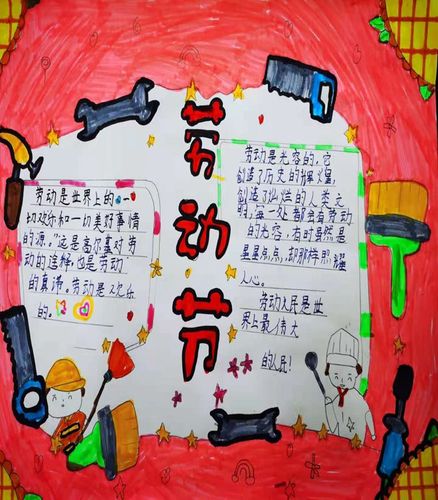 劳动节
劳动是世界上的一
切欢乐和一切美好事情
的源。"这是高尔基对劳
动的诠释,也是劳动
的真谛。劳动是欢乐
的。
劳动是光容的,它
创造了历史的辉煌,
创造了灿烂的人类文
明,每一处都有劳动
的光容,有时虽然是
星星点点,却那样照耀
人心。
劳动人民是世
界上最伟大
的人民!